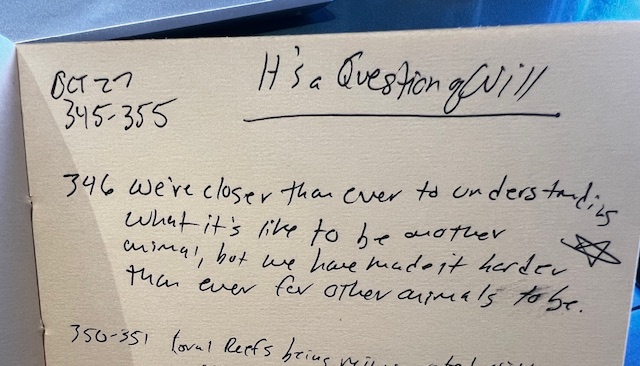 Oct 27
345-355
It's a Question of Will
346 we're closer than ever to understanding
what it's like to be another
animal, but we have made it harder
than ever for other animals to be.
350-351 Reefs being